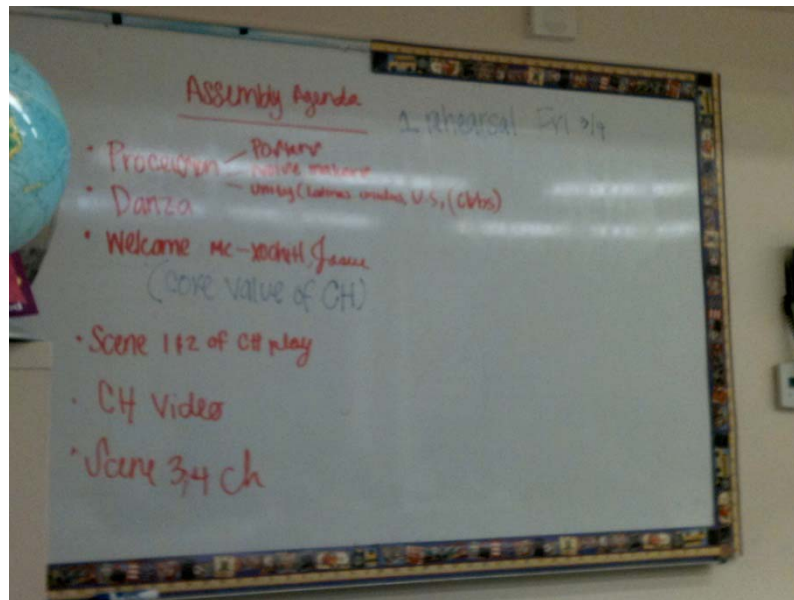 Assembly Agenda
1 rehearsal Fri 3/9
• Procession
• Danza
Unity (Latinos unidos, U.S, (Clubs)
• Welcome MC - Xochitl,
(core value of CH)
• Scene 1 & 2 of CH play
• CH Video
• Scene 3,4 Ch